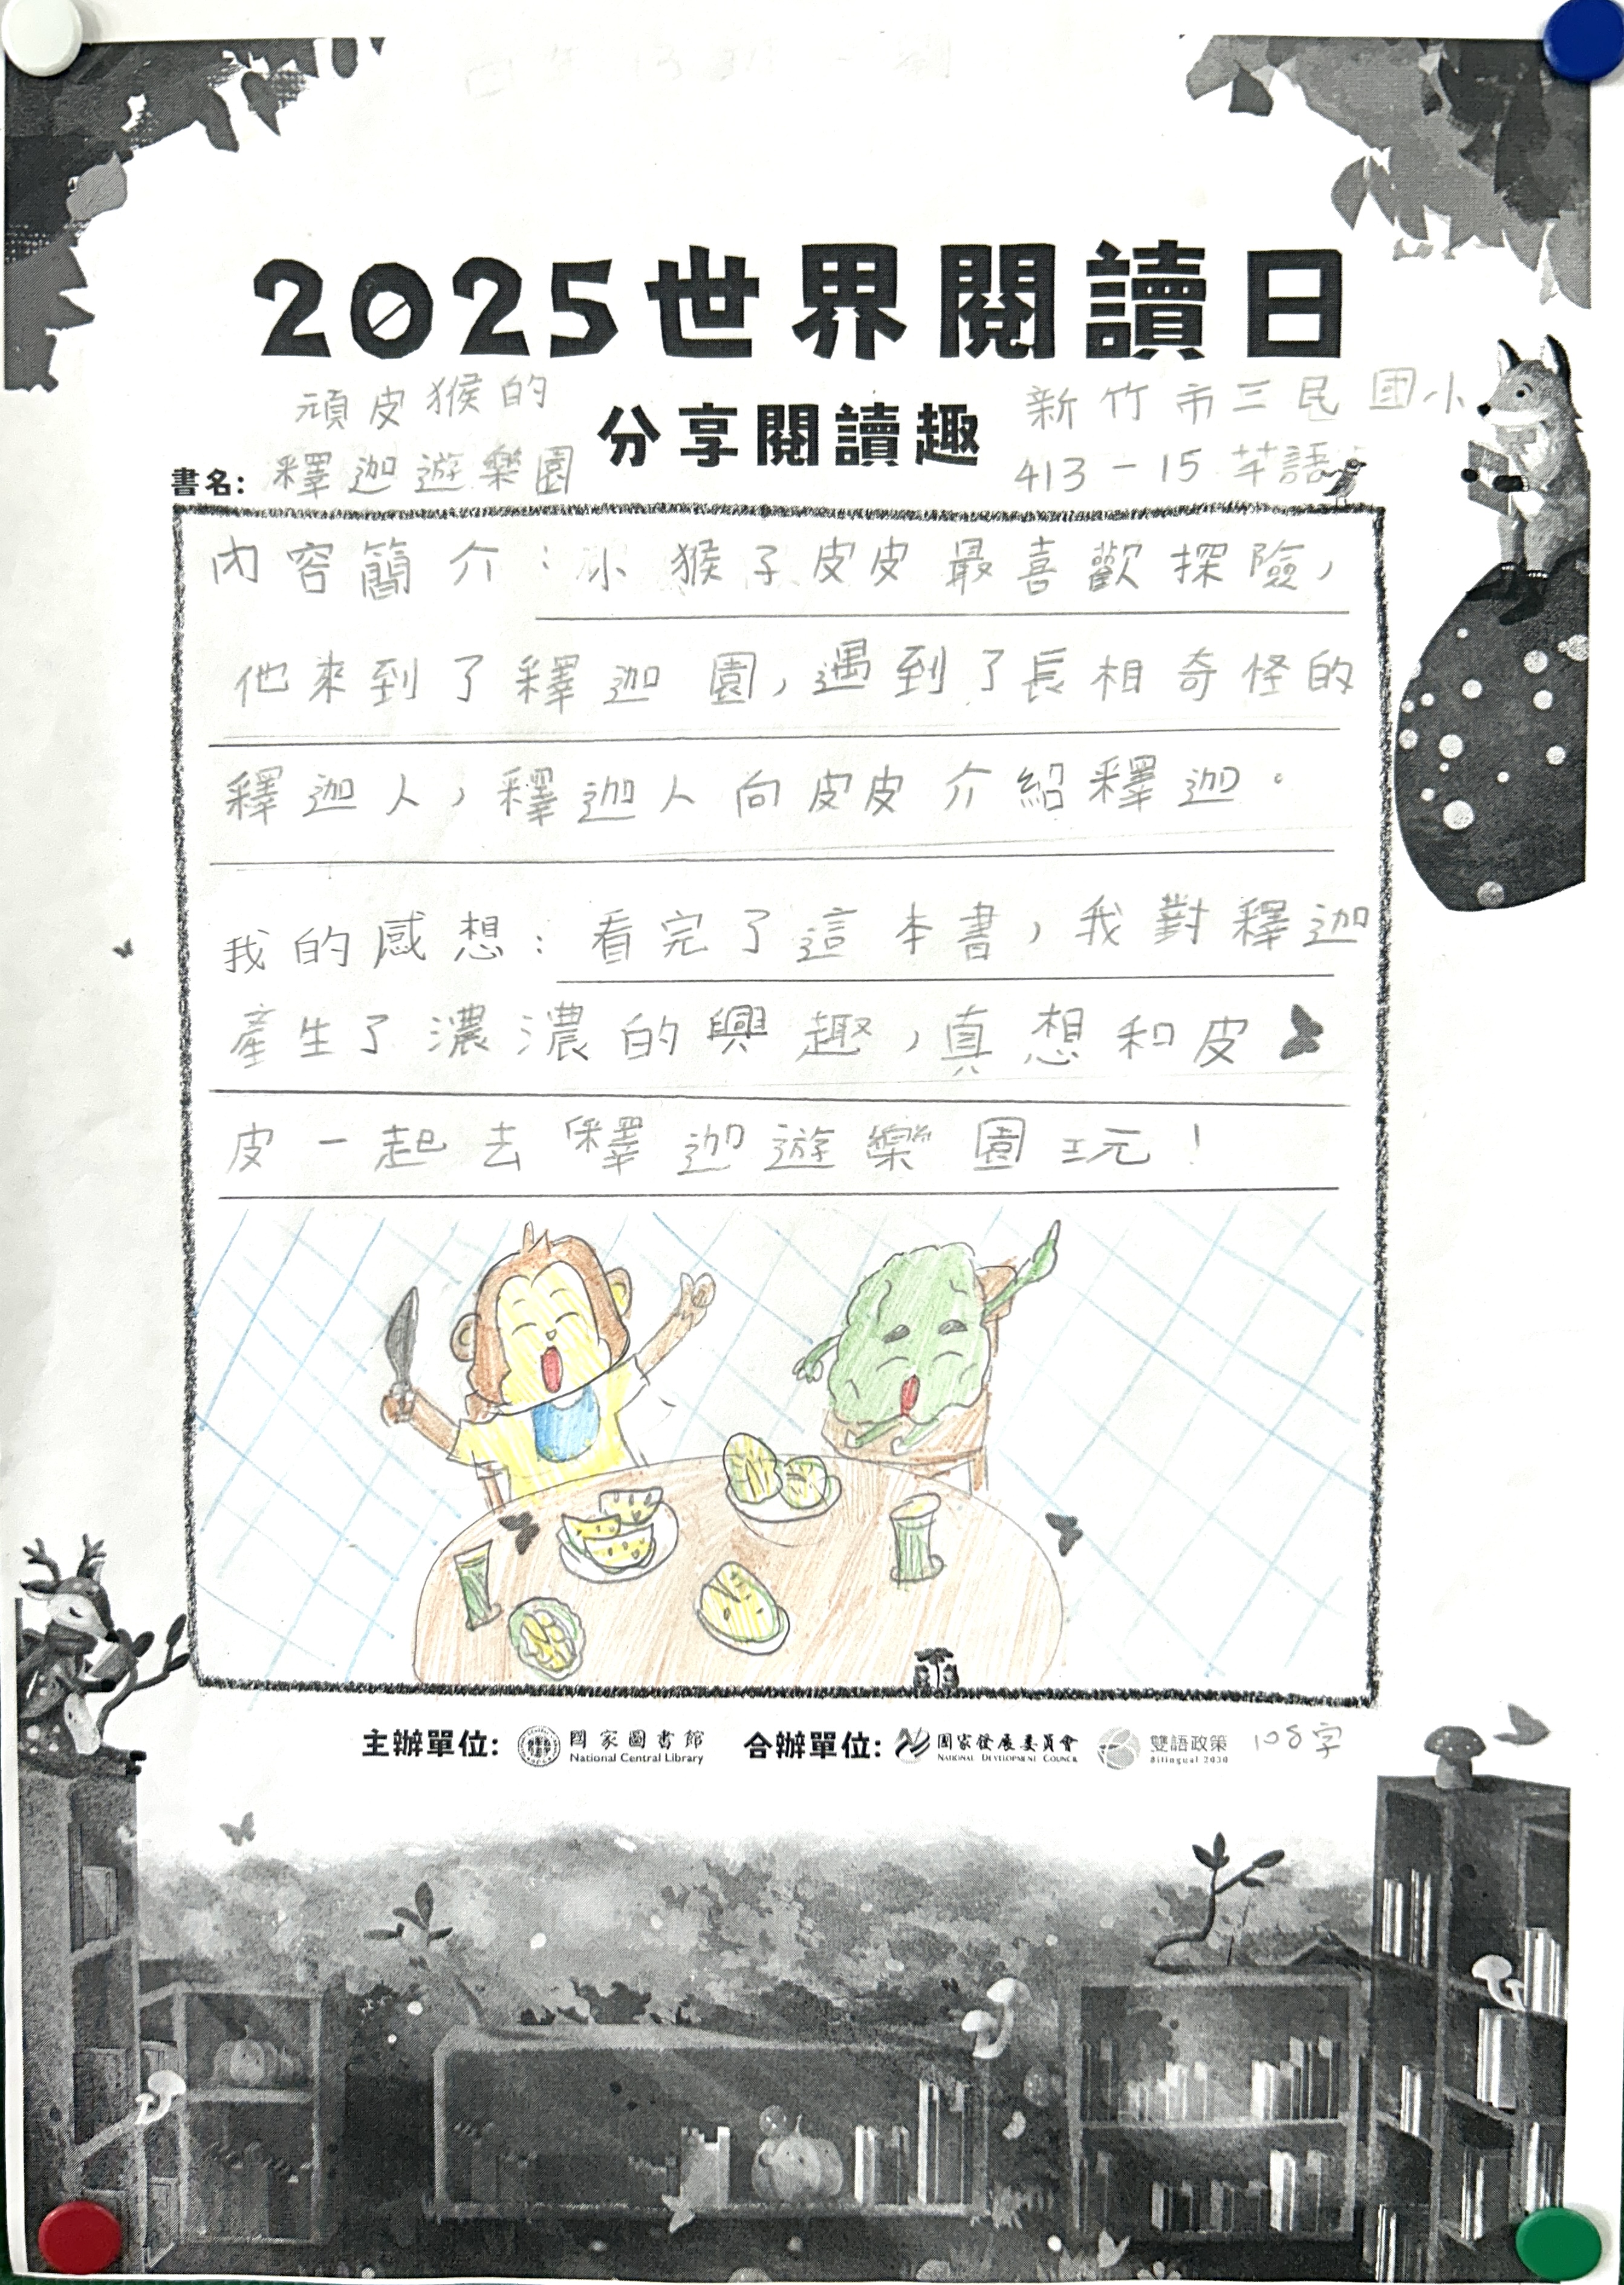 2025世界閱讀日
分享閱讀趣
新竹市三民國小
413-15 芊語
書名: 頑皮猴的
釋迦遊樂園
內容簡介:小猴子皮皮最喜歡探險,
他來到了釋迦園,遇到了長相奇怪的
釋迦人,釋迦人向皮皮介紹釋迦。
我的感想:看完了這本書,我對釋迦
產生了濃濃的興趣,真想和皮
皮一起去釋迦遊樂園玩!
主辦單位: 國家圖書館 National Central Library 合辦單位: 國家發展委員會 NATIONAL DEVELOPMENT COUNCIL 雙語政策 Bilingual 2030 108字